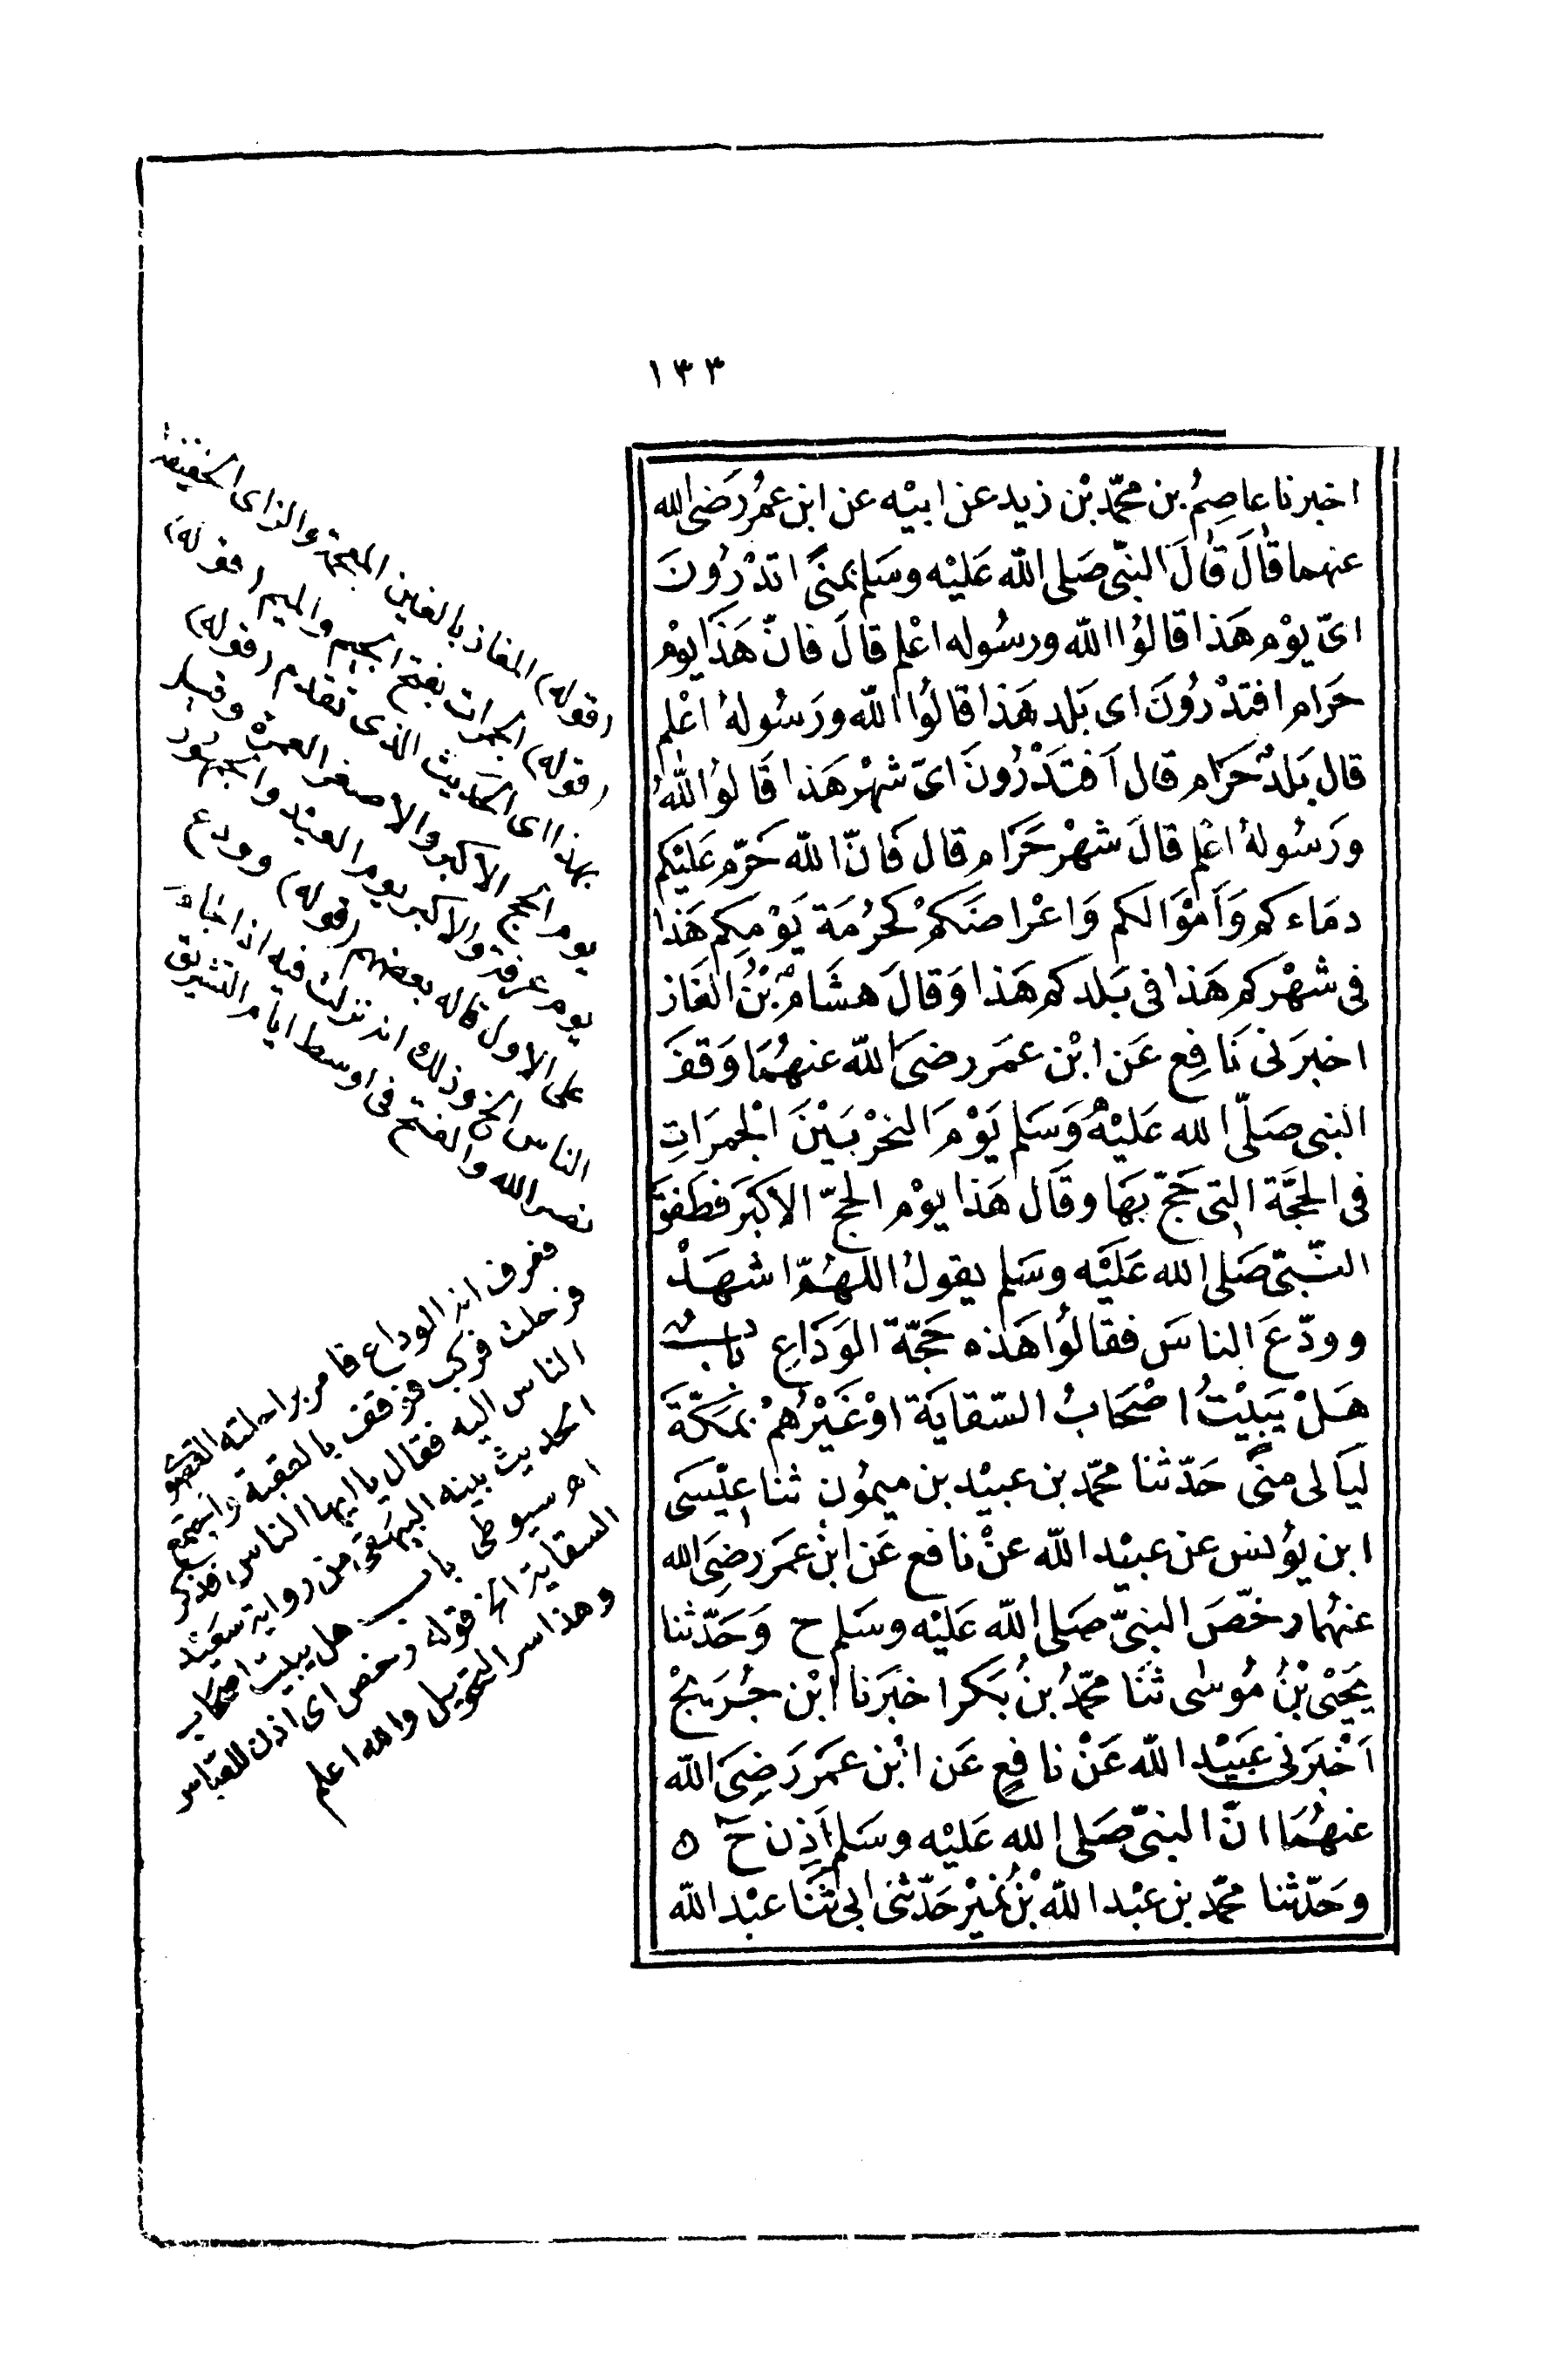 ١٣٣
اخبرنا عاصِمُ بن محمّد بْن زيد عن ابيْه عن ابن عمُر رَضى الله
عنهما قالَ قالَ النبّى صَلى الله عَليْه وسَلم بمنًى اتدْرُونَ
اىّ يوْم هَذا قالوُا الله ورسُوله اعْلم قالَ فانّ هَذَا يوْم
حَرَام افتدْرُونَ اى بَلد هَذا قالوُا الله ورَسُولهُ اعْلم
قال بَلدٌ حَرَام قال اَفتَدْرُونَ اىّ شهْر هَذا قَالوُا اللهُ
ورَسُولهُ اعْلم قالَ شهْر حَرَام قال فَانّ الله حَرّم عَليْكم
دمَاءكم وَاَمْوَالكم وَاعْراضَكمْ كحُرْمَة يَوْمِكم هَذا
فى شهْركم هَذا فى بَلدكم هَذا وَقالَ هشَام بْنُ الغَاز
اخبرَنى نَافِع عَن ابْن عمَر رضىَ الله عنهُمَا وَقفَ
النبى صَلّى الله عَليْهُ وَسَلم يَوْمَ النحْر بَيْنَ الْجمَرَاتِ
فى الحجَّة التى حَجّ بهَا وقَال هَذا يوْم الحجّ الاكبَر فطَفقَ
النّبىّ صَلى الله عَليْه وسَلم يقولُ اللهُمّ اشهَدْ
وودّعَ الناسَ فقالوُا هَذه حَجّة الوَدَاعِ بَاب
هَلْ يَبيْتُ اصْحَابُ السّقايَة اوْ غَيْرُهُمْ بمَكّةَ
ليَالى منًى حَدّثنا محمّد بن عبيْد بن ميمُون ثنا عِيْسَى
ابن يوُنس عن عبيْد الله عنْ نافع عَن ابْن عمَر رضِىَ الله
عنهُما رخّصَ النبىّ صَلى الله عَليْه وسَلم ح وَحَدّثنا
يَحيْى بْنُ مُوسٰى ثنَا محمّدُ بنُ بَكر اخبَرَنا ابْن جُرَيْجْ
اَخْبَرَنى عَبيْد الله عَنْ نافِعٍ عَن ابْن عمَر رَضِىَ الله
عنهُمَا انّ النبىّ صَلى الله عَليْه وسَلم اَذِن ح ٥
وحَدّثنا محمّد بن عبْد الله بْنُ نميْر حَدّثنى ابى ثنَا عبْد الله
(قوله) المغاز بالغين المعجمة والزاى الخفيفة
(قوله) الجمرات بفتح الجيم والميم (قوله)
بهذا اى الحديث الذى تقدم (قوله)
يوم الحج الاكبر والاصغر العمرة وقيل
يوم عرفة والاكبر يوم العيد والجمهور
على الاول قاله بعضهم (قوله) وودع
الناس الخ وذلك انه نزلت فيه اذا جاء
نصر الله والفتح فى اوسط ايام التشريق
فعرف انه الوداع فامر براحلته القصو
فرحلت فركب فوقف بالعقبة واجتمع
الناس اليه فقال يا ايها الناس فذكر
الحديث بينه البيهقى من رواية سعيد
اهـ سيوطى باب هل يبيت اصحاب
السقاية الخ قوله رخص اى اذن للعباس
وهذا سر التحويل والله اعلم